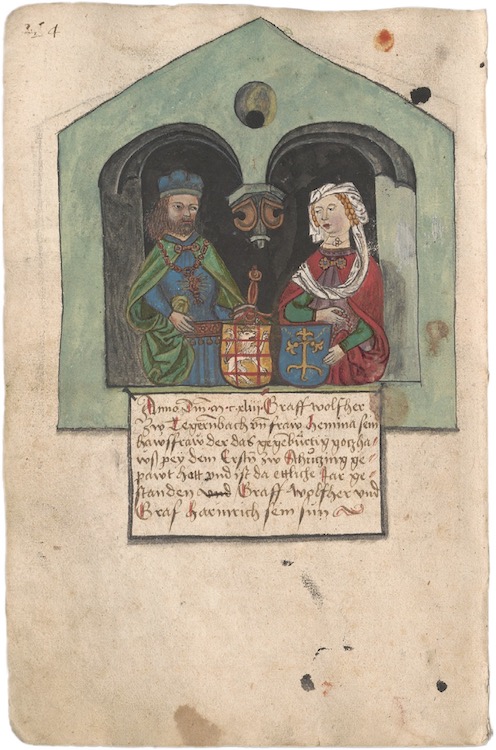 4
Anno Dm̄ · m · c · xliij · Graff wolfher
zw Tegernbach vn̄ fraw hemma sein
hawsfraw der das gegenbürtig gotzha-
ws pey dem Ersten zw Schützing ge-
pawt hatt vnd ist da ettliche Jar ge-
standen vnd Graff wolfher vnd
Graf hainrich sein sun